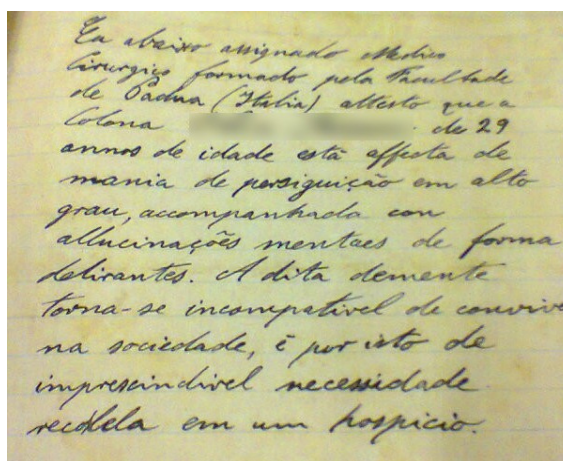 Eu abaixo assignado Medico
Cirurgico formado pela Facultade
de Padua (Italia) attesto que a
Colona de 29
annos de idade está affecta de
mania de persiguição em alto
grau, accompanhada con
allucinações mentaes de forma
delirantes. A dita demente
torna-se incompativel de convive
na sociedade, é por isto de
imprescindivel necessidade
recolela em um hospicio.